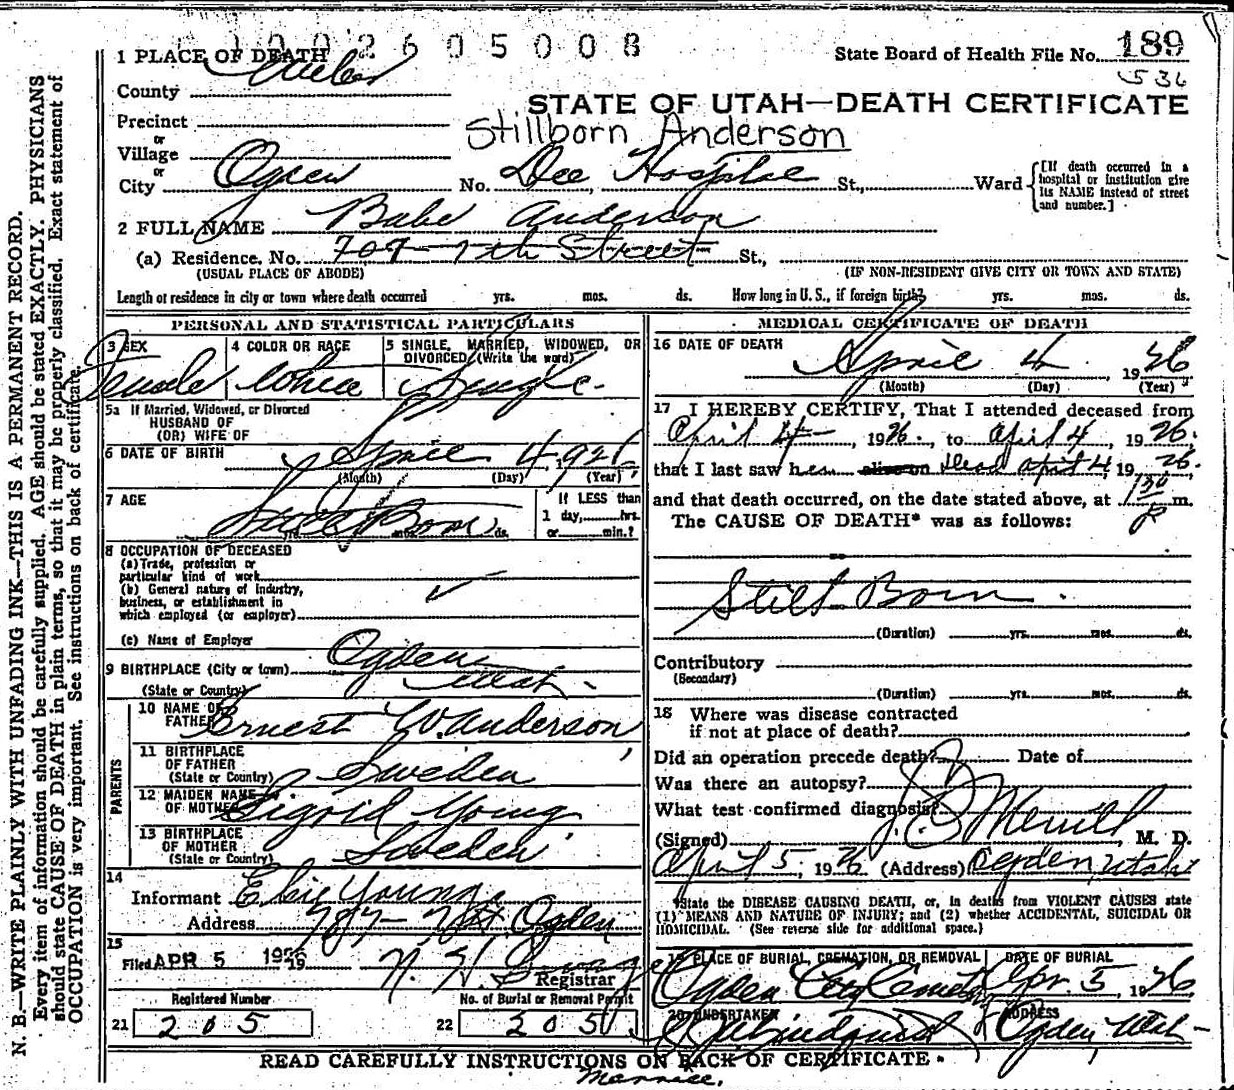 1002605008
1 PLACE OF DEATH
State Board of Health File No. 189
536
County Weber
STATE OF UTAH—DEATH CERTIFICATE
Precinct
Stillborn Anderson
or
Village
or
City Ogden No. Dee Hospital St., Ward
[If death occurred in a hospital or institution give its NAME instead of street and number.]
2 FULL NAME Babe Anderson
(a) Residence. No. 707- 7th Street St.,
(USUAL PLACE OF ABODE) (IF NON-RESIDENT GIVE CITY OR TOWN AND STATE)
Length of residence in city or town where death occurred yrs. mos. ds. How long in U. S., if foreign birth? yrs. mos. ds.
PERSONAL AND STATISTICAL PARTICULARS
3 SEX 4 COLOR OR RACE 5 SINGLE, MARRIED, WIDOWED, OR
DIVORCED (Write the word)
Female White Single
5a If Married, Widowed, or Divorced
HUSBAND OF
(OR) WIFE OF
6 DATE OF BIRTH April 4, 1926
(Month) (Day) (Year)
7 AGE If LESS than
Still Born 1 day, hrs.
yrs. mos. ds. or min.?
8 OCCUPATION OF DECEASED
(a) Trade, profession or
particular kind of work
(b) General nature of industry,
business, or establishment in
which employed (or employer)
(c) Name of Employer
9 BIRTHPLACE (City or town) Ogden
(State or Country) Utah
PARENTS
10 NAME OF
FATHER Ernest W. Anderson
11 BIRTHPLACE
OF FATHER
(State or Country) Sweden
12 MAIDEN NAME
OF MOTHER Sigrid Young
13 BIRTHPLACE
OF MOTHER
(State or Country) Sweden
14
Informant Young
Address 7th Ogden
15
Filed APR 5 1926 19 N. H. Savage
Registrar
Registered Number No. of Burial or Removal Permit
21 205 22 205
MEDICAL CERTIFICATE OF DEATH
16 DATE OF DEATH
April 4, 1926
(Month) (Day) (Year)
17 I HEREBY CERTIFY, That I attended deceased from
April 4, 1926, to April 4, 1926.
that I last saw h alive on dead April 4, 1926.
and that death occurred, on the date stated above, at 1 30 P m.
The CAUSE OF DEATH* was as follows:
Still Born
(Duration) yrs. mos. ds.
Contributory
(Secondary)
(Duration) yrs. mos. ds.
18 Where was disease contracted
if not at place of death?
Did an operation precede death? Date of
Was there an autopsy?
What test confirmed diagnosis?
(Signed) Merrill, M. D.
April 5, 1926 (Address) Ogden, Utah
*State the DISEASE CAUSING DEATH, or, in deaths from VIOLENT CAUSES state
(1) MEANS AND NATURE OF INJURY; and (2) whether ACCIDENTAL, SUICIDAL OR
HOMICIDAL. (See reverse side for additional space.)
19 PLACE OF BURIAL, CREMATION, OR REMOVAL DATE OF BURIAL
Ogden City Cemet Apr. 5, 1926
20 UNDERTAKER ADDRESS
Ogden, Utah
READ CAREFULLY INSTRUCTIONS ON BACK OF CERTIFICATE
N. B.—WRITE PLAINLY WITH UNFADING INK—THIS IS A PERMANENT RECORD.
Every item of information should be carefully supplied. AGE should be stated EXACTLY. PHYSICIANS
should state CAUSE OF DEATH in plain terms, so that it may be properly classified. Exact statement of
OCCUPATION is very important. See instructions on back of certificate.